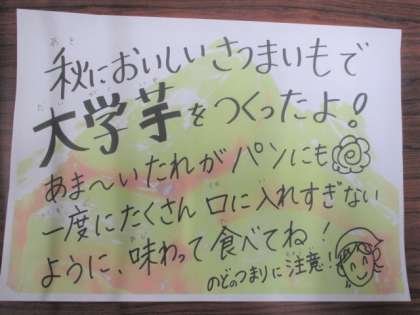 秋においしいさつまいもで
大学芋をつくったよ!
あま〜いたれがパンにも
一度にたくさん口に入れすぎない
ように、味わって食べてね!
のどのつまりに注意!